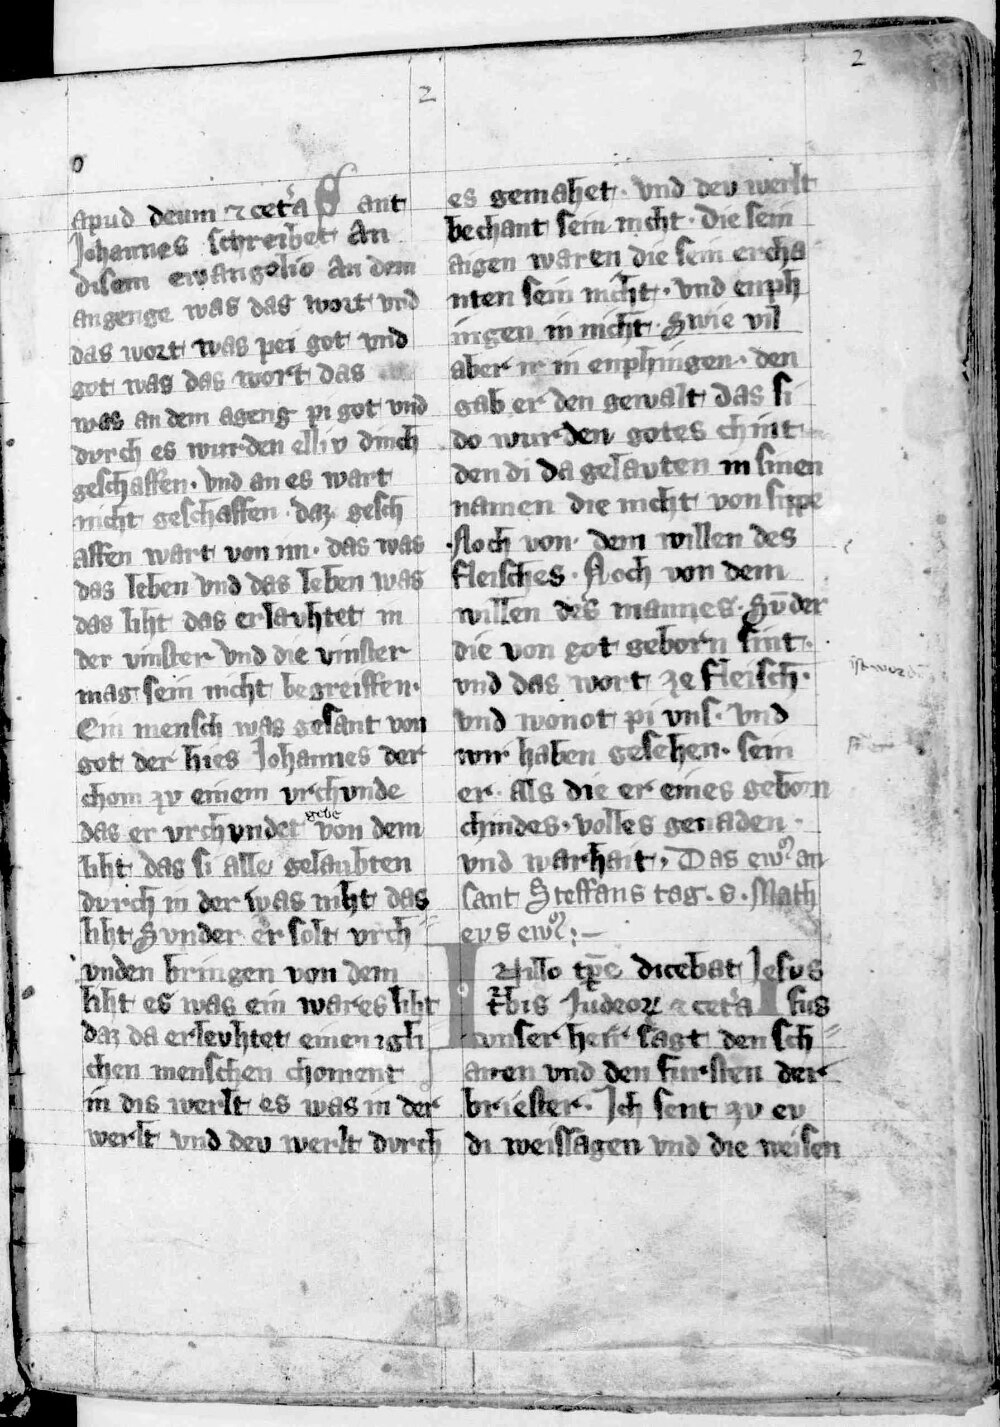 2
2
o
apud deum ⁊ cet͛a Sant
Johannes schreibet An
disem ewangelio An dem
angenge was das wort vnd
das wort was pei got vnd
got was das wort das
was an dem ageng pi got vnd
dvrch es wurden elliv dinch
geschaffen · vnd an es wart
nicht geschaffen · daz gesch
affen wart von im · das was
das leben vnd das leben was
das liht das erlavhtet in
der vinster vnd die vinster
mag sein nicht begreiffen ·
Ein mensch was gesant von
got der hies Johannes der
chom zv einem vrchvnde
gebe
das er vrchvndet von dem
liht das si alle gelaubten
dvrch in der was niht das
liht Svnder er solt vrch=
vnden bringen von dem
liht es was ein wares liht
daz da erlevhtet einen igli
chen menschen choment
in dis werlt es was in der
werlt vnd dev werlt dvrch
es gemahet · vnd dev werlt
bechant sein nicht · die sein
aigen waren die sein ercha
nten sein nicht · vnd enph
ingen in nicht Swie vil
aber ir in enphingen · den
gab er den gewalt das si
do wurden gotes chint
den di da gelauten in sinen
namen die nicht von sippe
Noch von dem willen des
fleisches · Noch von dem
willen des mannes · Sv̄der
die von got geborn sint ·
vnd das wort ze fleisch ·
ist word
vnd wonot pi vns · vnd
wir haben gesehen · sein
er · als die er eines geborn
chindes · volles genaden ·
vnd warhait , Das ew͛ an
sant Steffans tag · S · Math
evs ew͛ : —
In illo tp̄e dicebat Jesvs
tͬbis Judeoꝝ ⁊ cet͛a Jesus
vnser herr sagt den sch=
aren vnd den fursten der
briester · Ich sent zv ev
di weissagen vnd die weisen